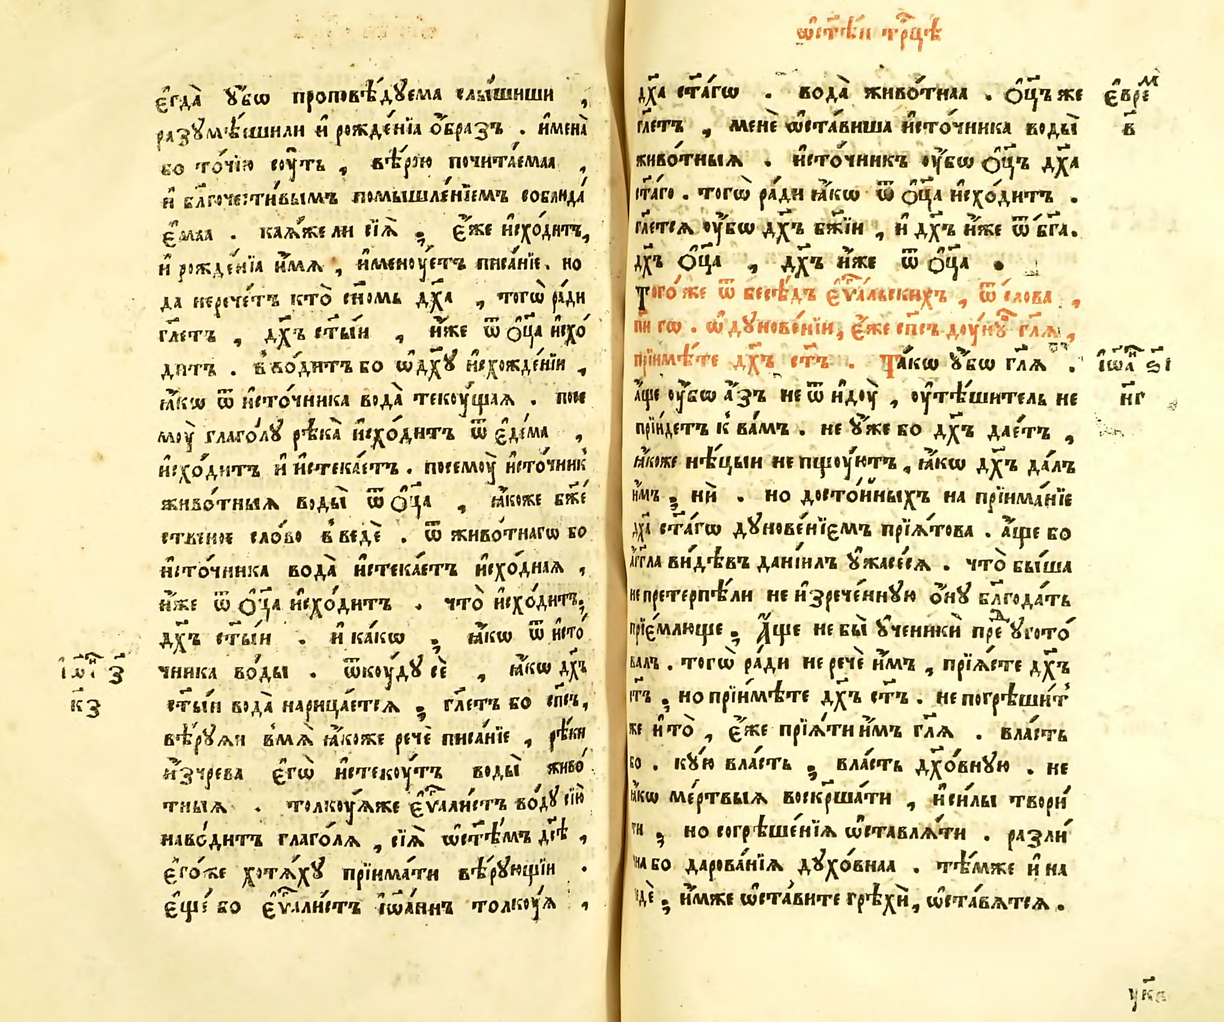 є҆гда̀ ᲂу҆́бѡ проповѣ́дуема слы́шиши ,
разумѣ́єшили и҆ рожде́нїѧ ѻ҆́бразъ . и҆мена̀
бо то́чїю сꙋ́ть , вѣ́рою почита́емаѧ ,
и҆ бл҃гоче́стивымъ помышле́нїємъ соблюда́
є҆маѧ . каѧ́же ли сїѧ̀ ; є҆́же и҆схо́дитъ,
и҆ рожде́нїѧ и҆́мѧ , и҆менꙋ́етъ писа́нїе. но
да нерече́тъ кто̀ сн҃омь дх҃а , тогѡ̀ ра́ди
гл҃етъ , дх҃ъ ст҃ы́и , и҆́же ѿ ѻц҃а̀ и҆схо́
дитъ . вво́дитъ бо ѡ҆дх҃у и҆схожде́нїи ,
ꙗ҆́кѡ ѿ и҆сто́чника вода̀ текꙋ́щаѧ . посе
мꙋ̀ глаго́лу рѣка̀ и҆схо́дитъ ѿ є҆де́ма ,
и҆схо́дитъ и҆ и҆стека́етъ . посемꙋ̀ и҆сто́чникъ
живо́тныѧ воды̀ ѿ ѻц҃а̀ , ꙗ҆́коже бж҃е́
ственое сло́во введѐ . ѿ живо́тнагѡ бо
и҆сто́чника вода̀ и҆стека́етъ и҆схо́днаѧ ,
и҆́же ѿ ѻц҃а̀ и҆схо́дитъ . что̀ и҆схо́дитъ;
дх҃ъ ст҃ы́и . и҆ ка́кѡ ; ꙗ҆́кѡ ѿ и҆сто́
чника во́ды . ѿкꙋ́ду сѐ , ꙗ҆́кѡ дх҃ъ
ст҃ы́и вода̀ нарица́етсѧ ; гл҃етъ бо сп҃съ,
вѣ́руѧи вмѧ̀ ꙗ҆́коже речѐ писа́нїе , рѣ́ки
и҆зчрева є҆гѡ̀ и҆стекꙋ́тъ воды̀ живо́
тныѧ . толкꙋ́ѧже є҆ѵⷢ҇али́стъ во́ду сїю̀
наво́дитъ глаго́лѧ , сїѧ̀ ѡ҆ст҃ѣ́мъ дс҃ѣ ,
є҆го́же хотѧ́ху прїима́ти вѣ́рующїи .
є҆ще́ бо є҆ѵⷢ҇али́стъ і҆ѡа́ннъ толкꙋ́ѧ ,
і҆ѡⷩ҇ з҃
к҃з
ѡ҆ст҃ѣ́и трⷪ҇цѣ
дх҃а ст҃а́гѡ . вода̀ живо́тнаѧ . ѻц҃ъ же
гл҃етъ , менѐ ѡ҆ста́виша и҆сто́чника воды̀
живо́тныѧ . и҆сто́чникъ ᲂу҆́бѡ ѻц҃ъ дх҃а
ст҃а́го . тогѡ̀ ра́ди ꙗ҆́кѡ ѿ ѻц҃а̀ и҆схо́дитъ .
гл҃етсѧ ᲂу҆́бѡ дх҃ъ бж҃їи , и҆ дх҃ъ и҆́же ѿ бг҃а.
дх҃ъ ѻц҃а̀ , дх҃ъ и҆́же ѿ ѻц҃а̀ .
Того́же ѿ бесѣ́дъ є҆ѵⷢ҇а́льскихъ , ѿ сло́ва ,
пи҃ гѡ . ѡ҆ дунове́нїи, є҆́же сп҃съ дꙋ́нꙋ гл҃ѧ ,
прїими́те дх҃ъ ст҃ъ . Та́кѡ ᲂу҆́бѡ гл҃ѧ .
а҆́ще ᲂу҆́бѡ а҆́зъ не ѿидꙋ̀ , ᲂу҆тѣ́шитель не
прїи́детъ к ва́мъ . не ᲂу҆́же бо дх҃ъ дае́тъ ,
ꙗ҆́коже нѣ́цыи непщꙋ́ютъ , ꙗ҆́кѡ дх҃ъ да́лъ
и҆́мъ ; нѝ . но досто́йныхъ на прїима́нїе
дх҃а ст҃а́гѡ дунове́нїємъ прїѧ́това . а҆́ще бо
а҆́гг҃ла ви́дѣвъ данїи́лъ ᲂу҆жасе́сѧ . что̀ бы́ша
не претерпѣ́ли не и҆зрече́нную ѻ҆́ну бл҃года́ть
прїе́млюще ; А҆́ще не бы̀ ᲂу҆ченикѝ пре́ⷣ ᲂу҆гото́
валъ . тогѡ̀ ра́ди не речѐ и҆́мъ , прїѧ́сте дх҃ъ
ст҃ъ , но прїими́те дх҃ъ ст҃ъ . не погрѣши́т
же и҆ то̀ , є҆́же прїѧ́ти и҆́мъ гл҃ѧ . вла́сть
бо . ку́ю вла́сть ; вла́сть дх҃о́вную . не
ꙗ҆́кѡ ме́ртвыѧ воскр҃ша́ти , и҆ си́лы твори́
ти ; но согрѣше́нїѧ ѡ҆ставлѧ́ти . разли́
чна бо дарова́нїѧ духо́внаѧ . тѣ́мже и҆ на
ведѐ ; и҆́мже ѡ҆ста́вите грѣхѝ, ѡ҆ста́вѧтсѧ .
є҆вре́ⷨ
в҃
і҆ѡⷩ҇ ѕ҃і
н҃г